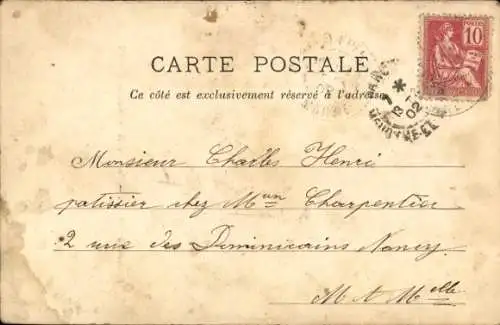 10
CARTE POSTALE
Ce côté est exclusivement réservé à l'adresse
Monsieur Charles Henri
patissier chez Mme Charpentier
2 rue des Dominicains Nancy
M et Melle